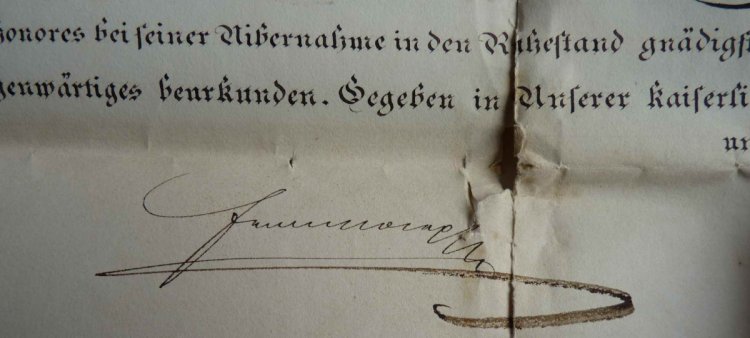 honores bei seiner Uibernahme in den Ruhestand gnädigst
genwärtiges beurkunden. Gegeben in Unserer kaiserli
un